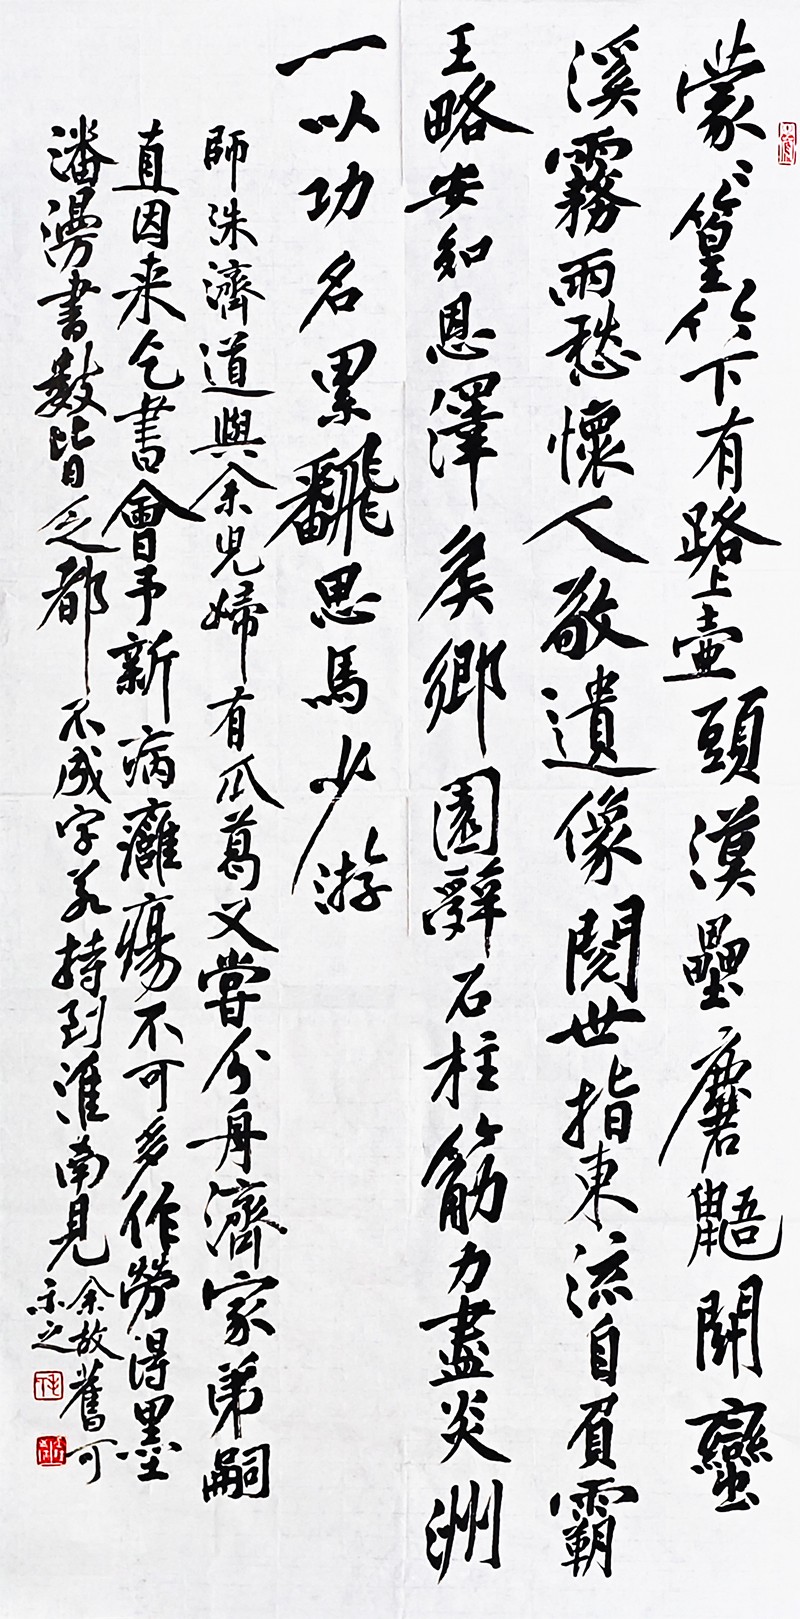 蒙〻篁竹下有路上壺頭漢壘麏鼯鬭蠻
溪霧雨愁懷人敬遺像閱世指東流自負霸
王略安知恩澤矦鄉園辭石柱筋力盡炎洲
一以功名累飜思馬少游
師洙濟道與余兒婦有瓜葛又嘗分舟濟家弟嗣
直因来乞書會予新病癰瘍不可多作勞得墨
潘漫書數皆乏都不成字若持到淮南見
余故舊可
示之